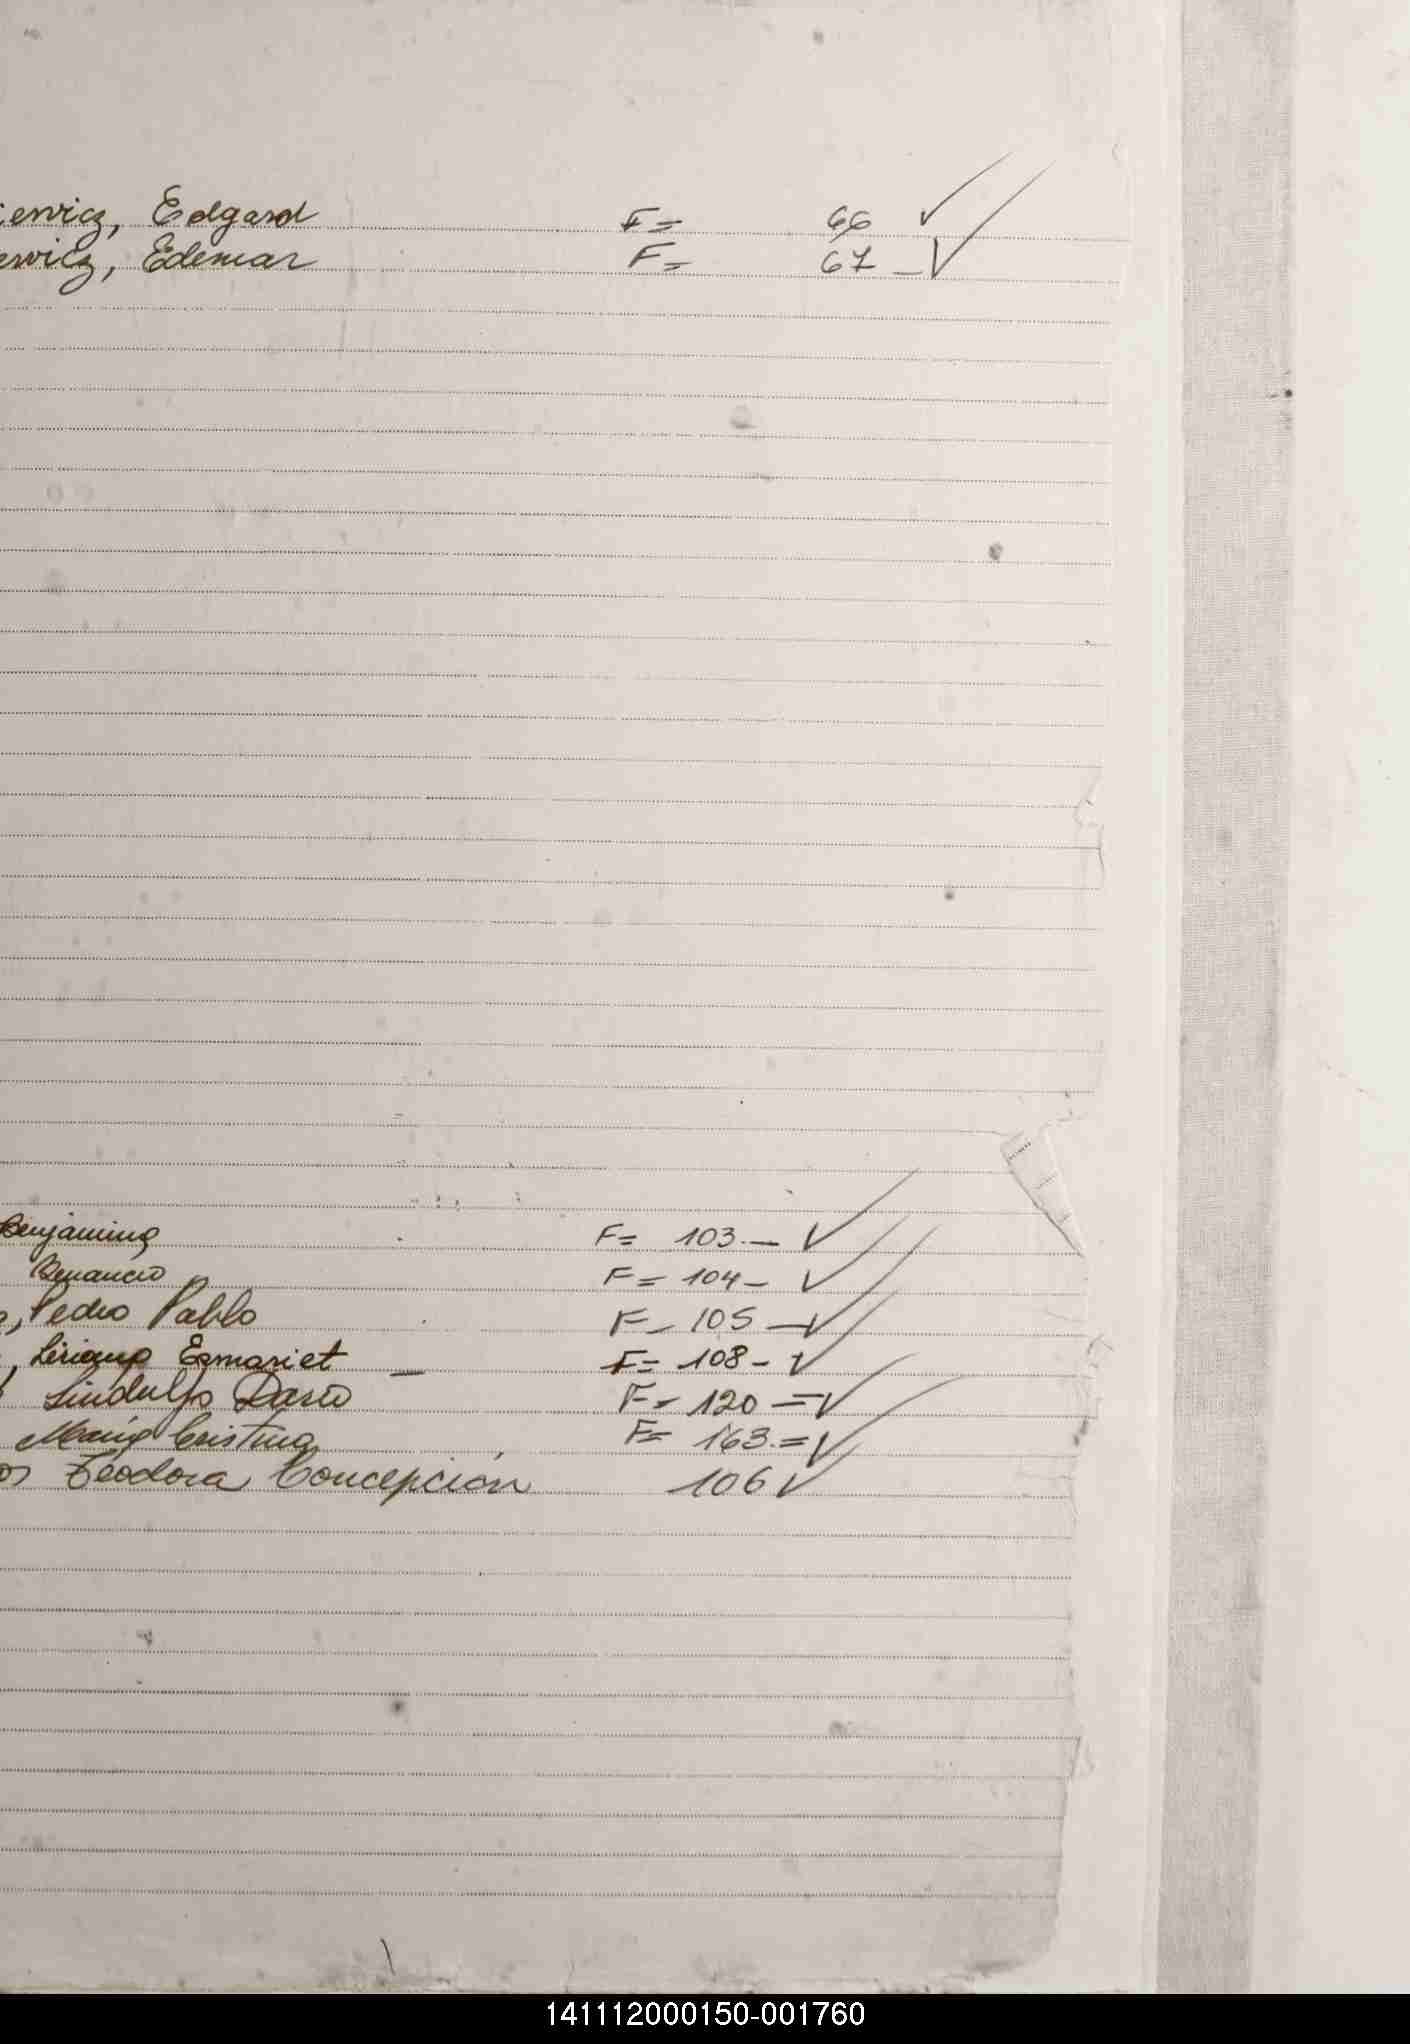 iewicz, Edgard F= 66 ✓
ewicz, Edemar F= 67 - ✓
Benjamina F= 103.- ✓
Benancio F= 104- ✓
o, Pedro Pablo F- 105 - ✓
, Liriana Esmariet - F= 108- ✓
Sindulfo Dario F= 120 = ✓
María Cristina F= 163.= ✓
os Teodora Concepción 106 ✓
141112000150-001760